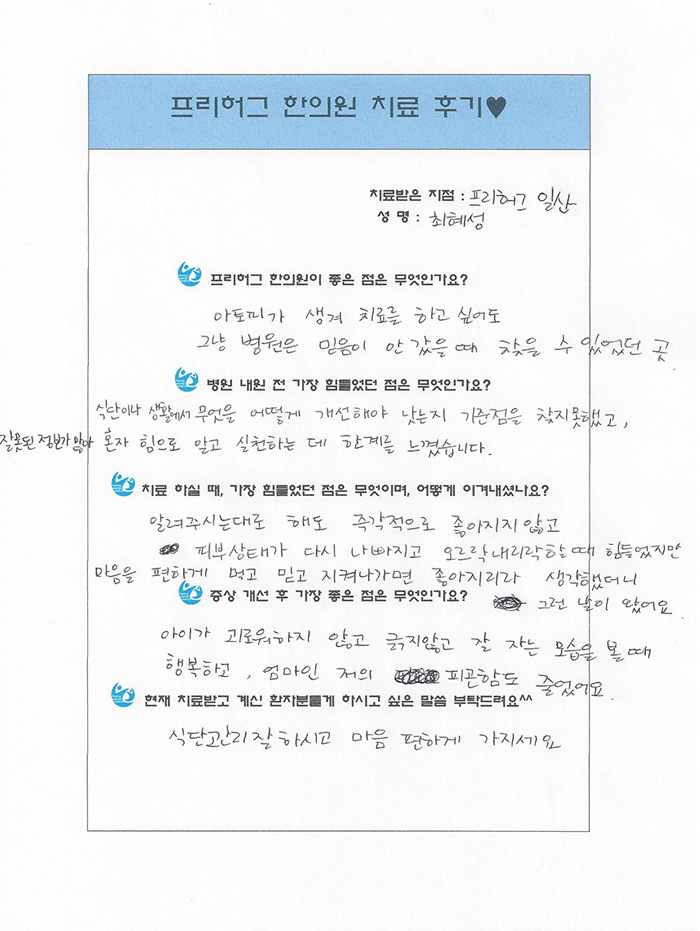 프리허그 한의원 치료 후기♥
치료받은 지점 : 프리허그 일산
성 명 : 최혜성
프리허그 한의원이 좋은 점은 무엇인가요?
아토피가 생겨 치료를 하고 싶어도
그냥 병원은 믿음이 안 갔을 때 찾을 수 있었던 곳
병원 내원 전 가장 힘들었던 점은 무엇인가요?
식단이나 생활에서 무엇을 어떻게 개선해야 낫는지 기준점을 찾지못했고,
잘못된 정보가 많아 혼자 힘으로 알고 실천하는 데 한계를 느꼈습니다.
치료 하실 때, 가장 힘들었던 점은 무엇이며, 어떻게 이겨내셨나요?
알려주시는대로 해도 즉각적으로 좋아지지 않고
피부상태가 다시 나빠지고 오르락내리락할 때 힘들었지만
마음을 편하게 먹고 믿고 지켜나가면 좋아지리라 생각했더니
그런 날이 왔어요
증상 개선 후 가장 좋은 점은 무엇인가요?
아이가 괴로워하지 않고 긁지않고 잘 자는 모습을 볼 때
행복하고, 엄마인 저의 피곤함도 줄었어요.
현재 치료받고 계신 환자분들게 하시고 싶은 말씀 부탁드려요^^
식단관리 잘 하시고 마음 편하게 가지세요